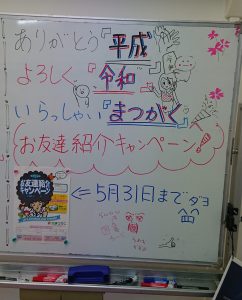 ありがとう『平成』
よろしく『令和』
いらっしゃい『まつがく』
お友達紹介キャンペーン!
お友達紹介
キャンペーン
⇐5月31日までダヨ